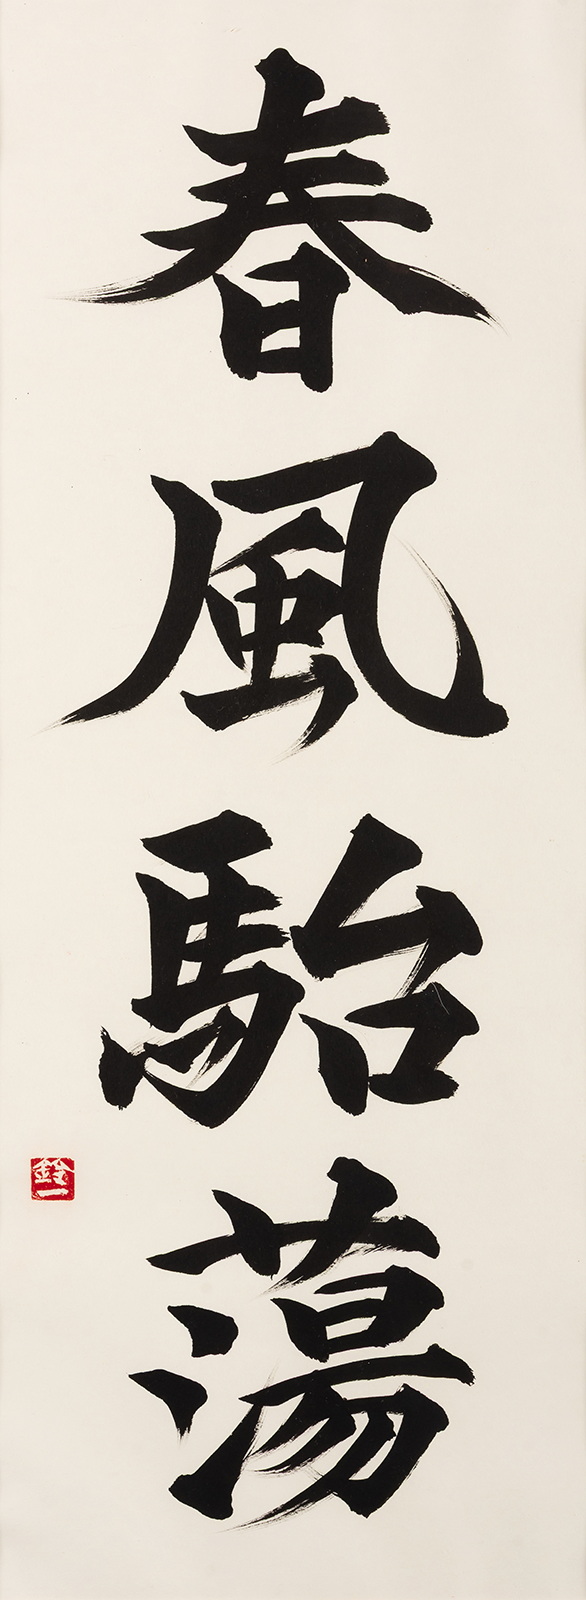 春風駘蕩
鈴一